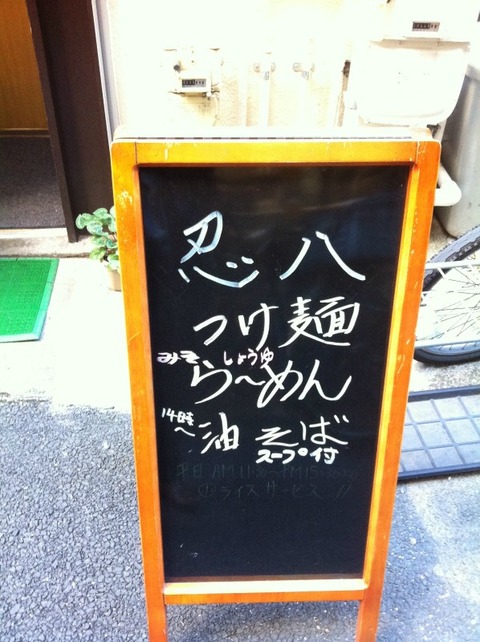 忍八
つけ麺
みそ しょうゆ
ら〜めん
14時〜 油そば
スープ付
平日 AM11:30〜PM15:
ライスサービス